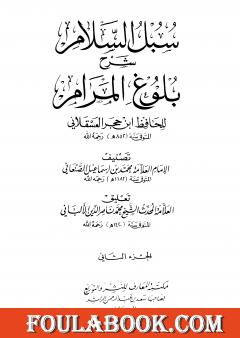 سبل السلام
شرح
بلوغ المرام
للحافظ ابن حجر العسقلاني
المتوفى سنة (٨٥٢هـ) رحمه الله
تصنيف
الإمام العلامة محمد بن إسماعيل الصنعاني
المتوفى سنة (١١٨٢هـ) رحمه الله
تعليق
العلامة المحدث الشيخ محمد ناصر الدين الألباني
المتوفى سنة (١٤٢٠هـ) رحمه الله
الجزء الثاني
مكتبة المعارف للنشر والتوزيع
لصاحبها سعد بن عبد الرحمن الراشد
FOULABOOK.COM